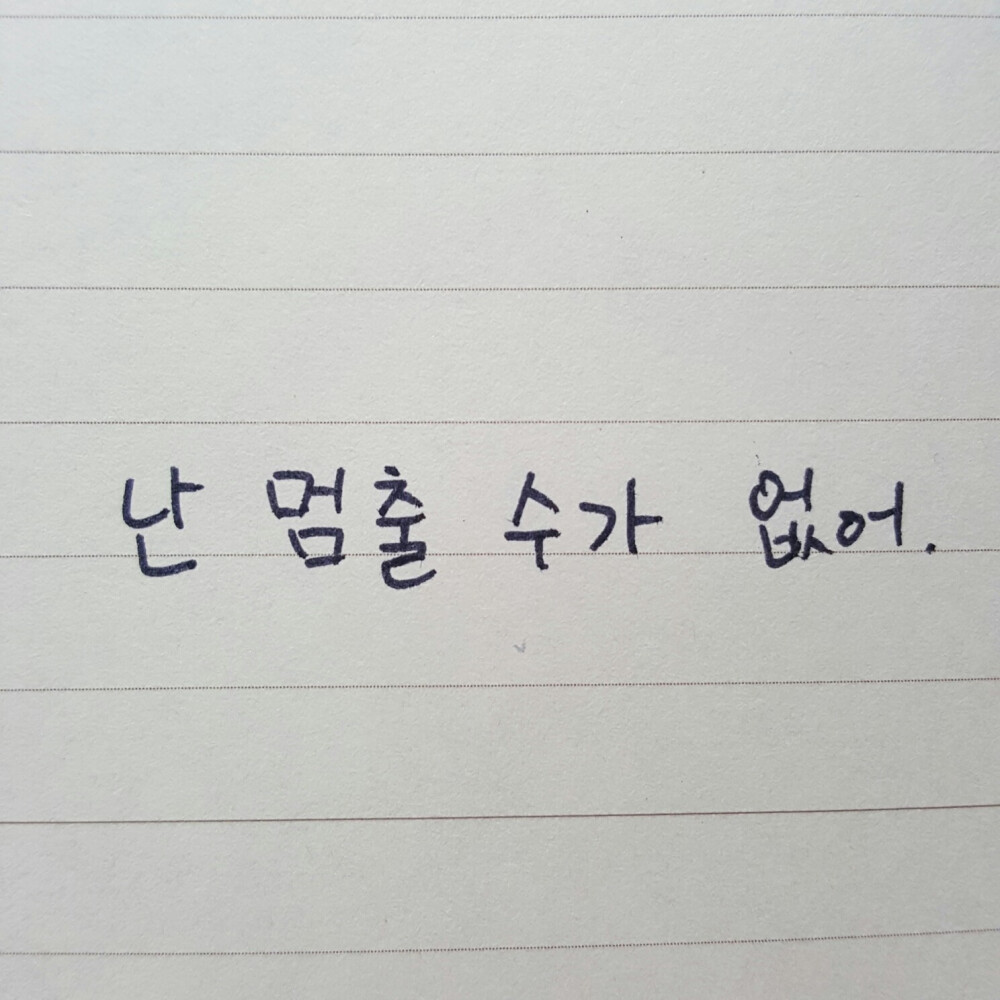 난 멈출 수가 없어.